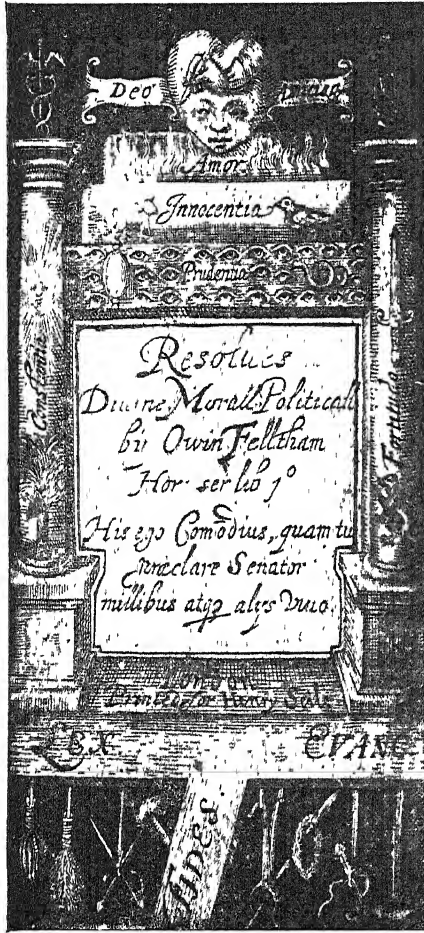 Deo
Amor
Innocentia
Prudentia
Constantia
Fortitudo
Resolues
Diuine Morall Politicall
by Owin Felltham
Hor: ser lib 1°
His ego Comodius, quam tu
præclare Senator
millibus atqꝫ alijs viuo.
London
Printed for Henry Seile
LEX
EVANG
FIDES